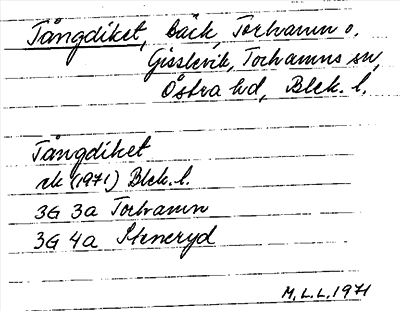 Tångdiket, bäck, Torhamn o.
Gisslevik, Torhamns sn,
Östra hd, Blek. l.
Tångdiket
rk (1971) Blek. l.
3G 3a Torhamn
3G 4a Steneryd
M. L. L. 1971